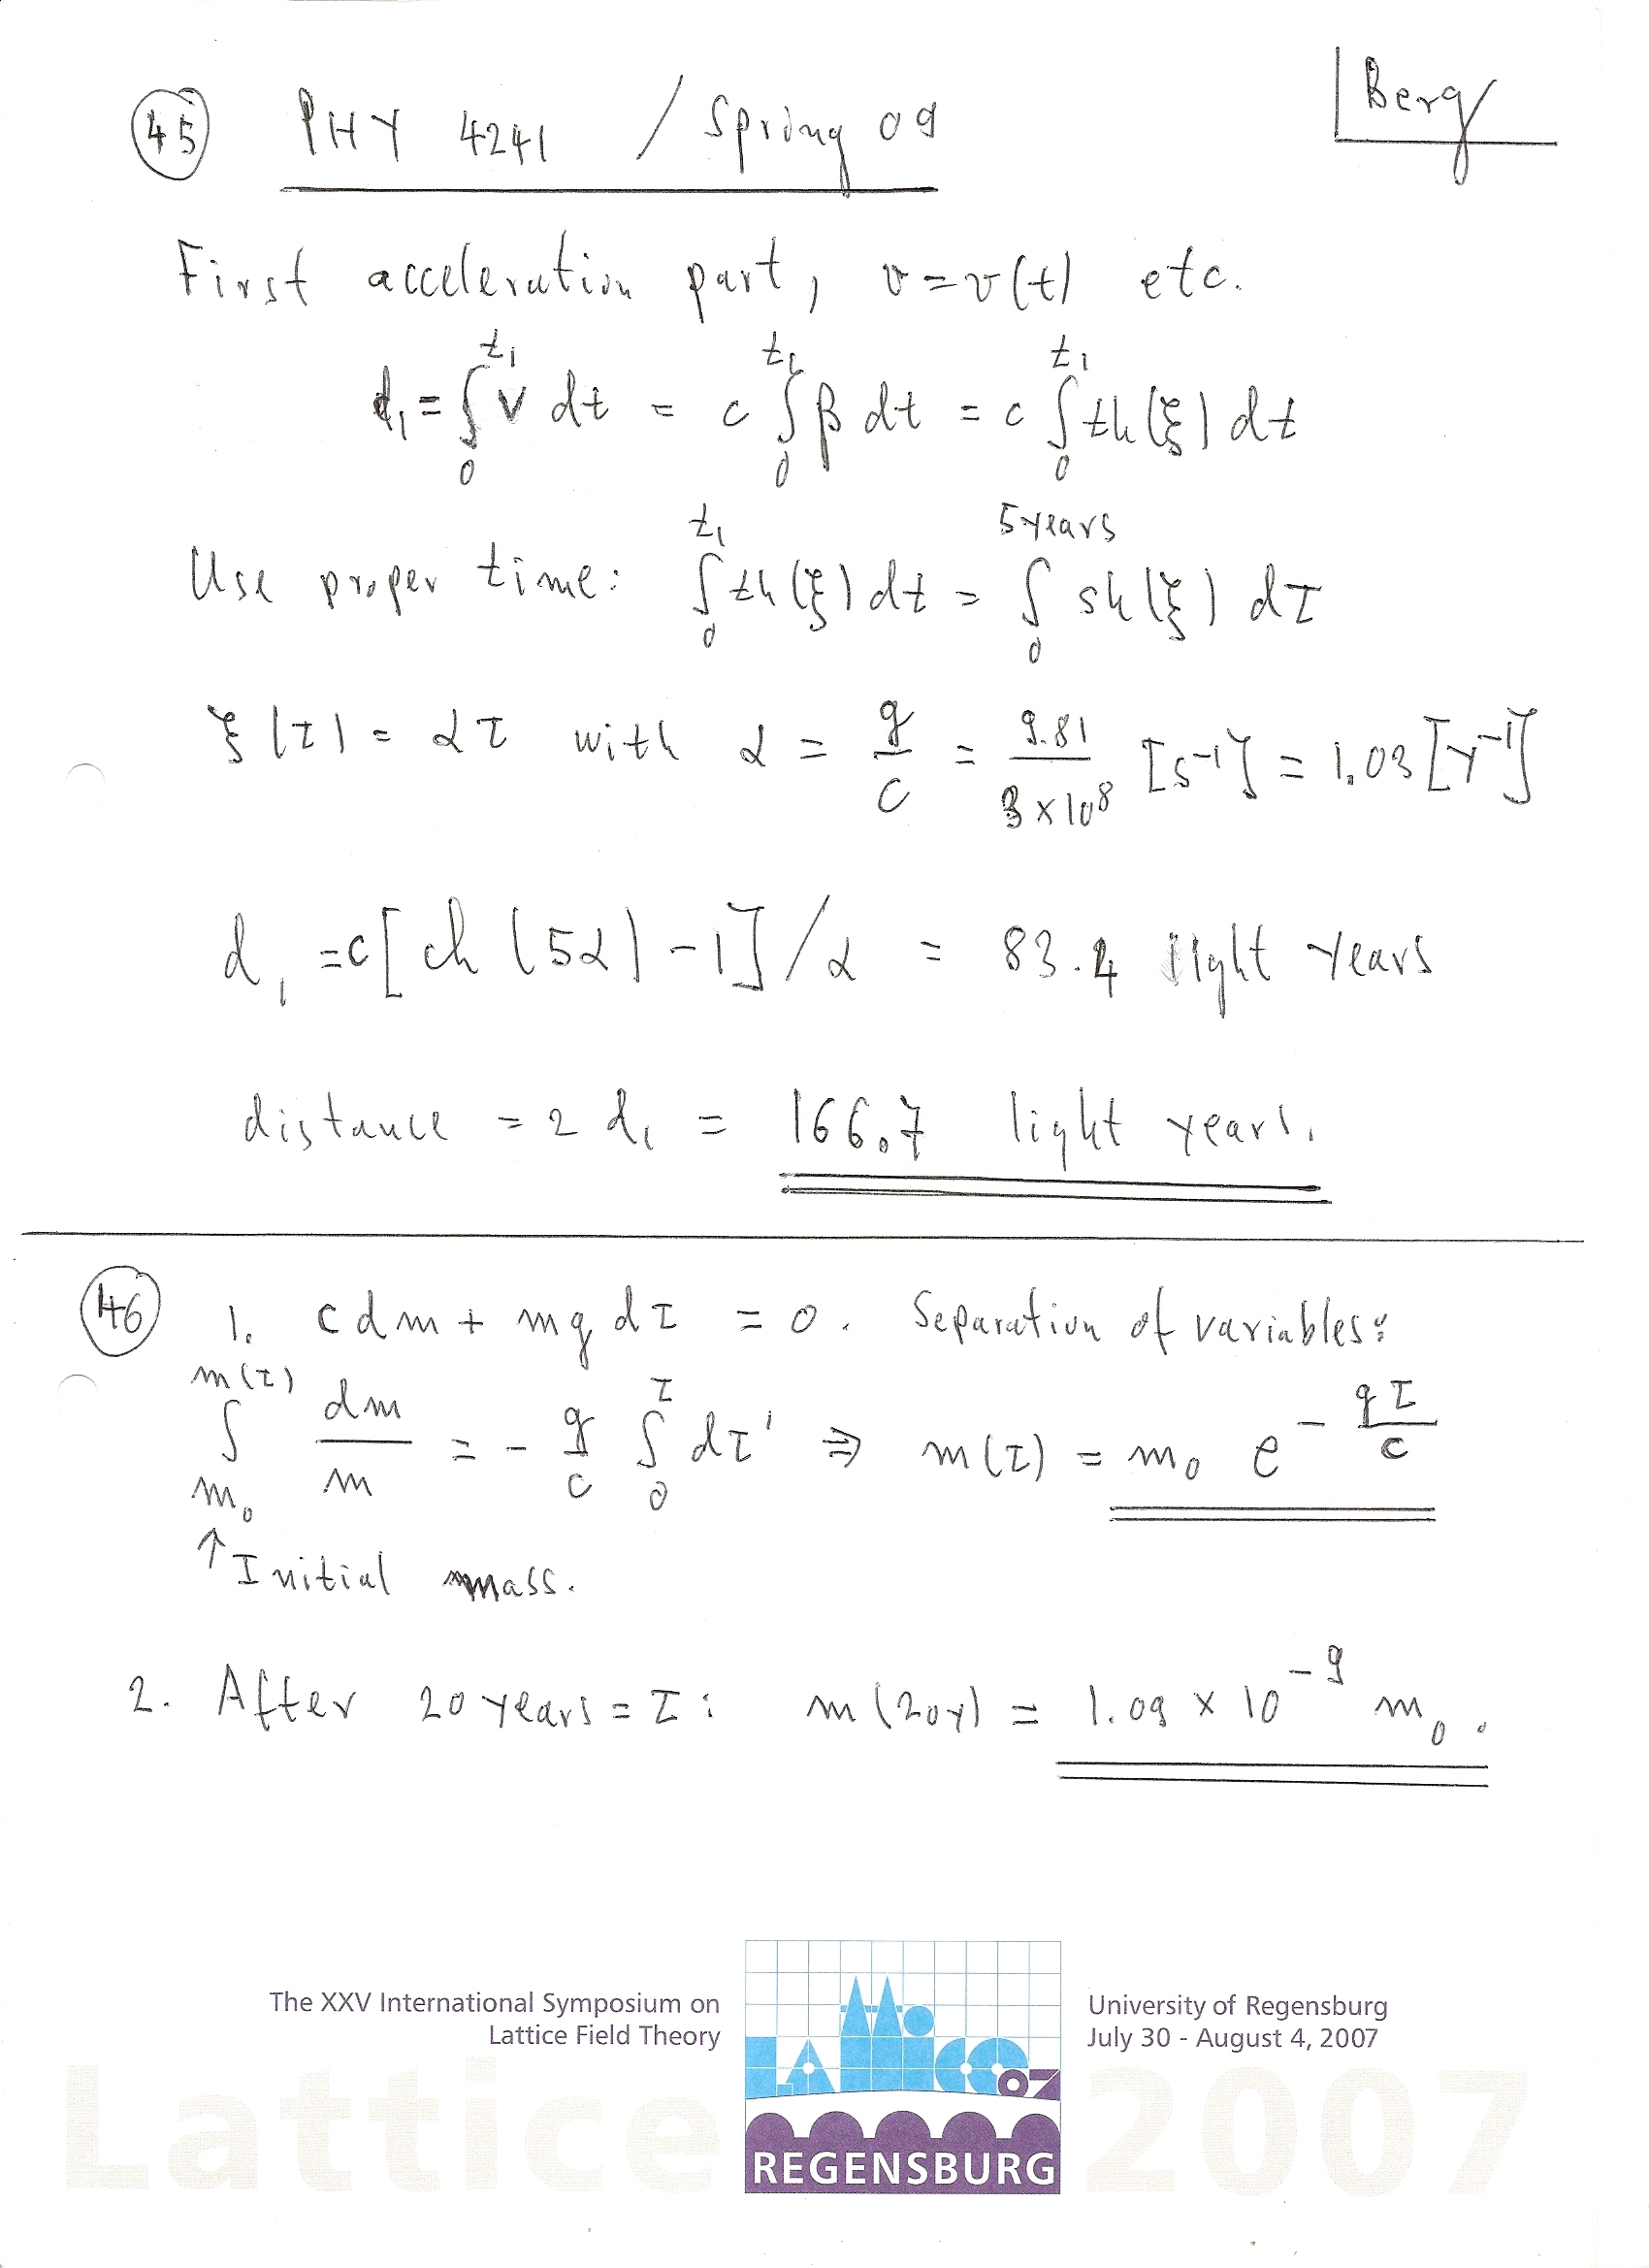 45 PHY 4241 / Spring 09 Berg
First acceleration part, v = v(t) etc.
d₁ = ∫₀^{t₁} v dt = c ∫₀^{t₁} β dt = c ∫₀^{t₁} th(ξ) dt
Use proper time: ∫₀^{t₁} th(ξ) dt = ∫₀^{5 years} sh(ξ) dτ
ξ(τ) = ατ with α = g/c = 9.81/3×10⁸ [s⁻¹] = 1.03 [y⁻¹]
d₁ = c[ch(5α) - 1]/α = 83.4 light years
distance = 2 d₁ = 166.7 light years.
46 1. c dm + mg dτ = 0. Separation of variables:
∫_{m₀}^{m(τ)} dm/m = - g/c ∫₀^τ dτ' ⇒ m(τ) = m₀ e^{-gτ/c}
↑ Initial mass.
2. After 20 years = τ: m(20y) = 1.09 × 10⁻⁹ m₀.
The XXV International Symposium on
Lattice Field Theory
LATTICE 07
REGENSBURG
University of Regensburg
July 30 - August 4, 2007
Lattice 2007